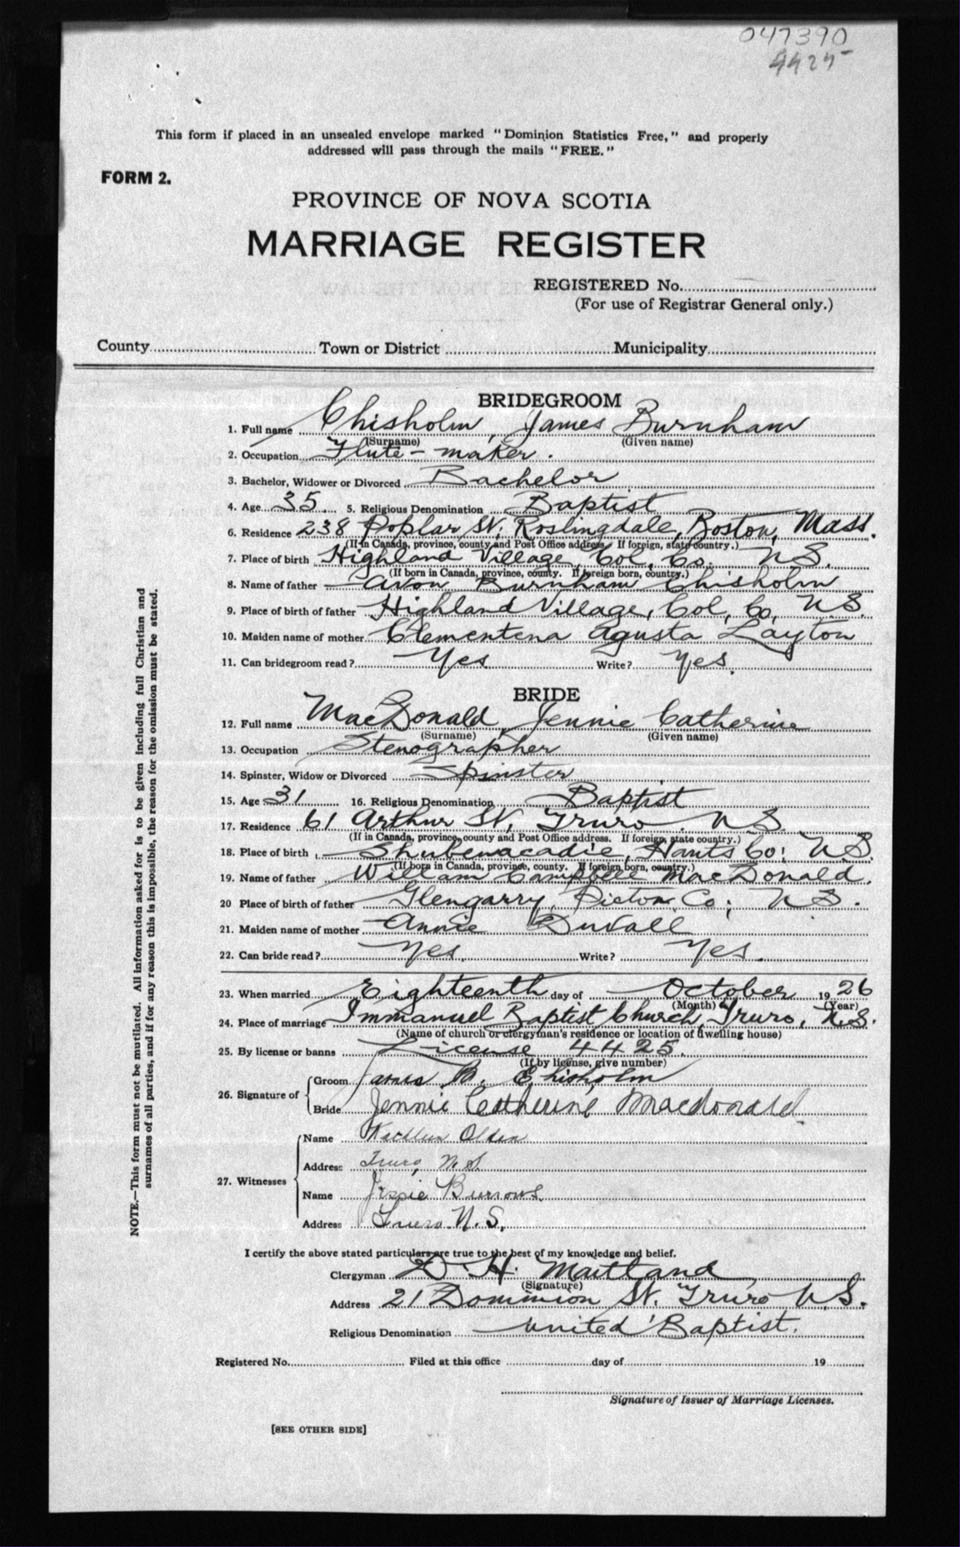 047390
4425
This form if placed in an unsealed envelope marked "Dominion Statistics Free," and properly
addressed will pass through the mails "FREE."
FORM 2.
PROVINCE OF NOVA SCOTIA
MARRIAGE REGISTER
REGISTERED No.
(For use of Registrar General only.)
County Town or District Municipality
BRIDEGROOM
1. Full name Chisholm, James Burnham
(Surname) (Given name)
2. Occupation Flute-maker.
3. Bachelor, Widower or Divorced Bachelor
4. Age 35 5. Religious Denomination Baptist
6. Residence 238 Poplar St, Roslingdale, Boston, Mass.
(If in Canada, province, county and Post Office address. If foreign, state country.)
7. Place of birth Highland Village, Col. Co. N.S.
(If born in Canada, province, county. If foreign born, country.)
8. Name of father Avon Burnham Chisholm
9. Place of birth of father Highland Village, Col, Co, N.S
10. Maiden name of mother Clementena Agusta Layton
11. Can bridegroom read? Yes Write? Yes.
BRIDE
12. Full name MacDonald, Jennie Catherine
(Surname) (Given name)
13. Occupation Stenographer
14. Spinster, Widow or Divorced Spinster
15. Age 31 16. Religious Denomination Baptist
17. Residence 61 Arthur St, Truro N.S.
(If in Canada, province, county and Post Office address. If foreign, state country.)
18. Place of birth Shubenacadie, Hants Co; N.S.
(If born in Canada, province, county. If foreign born, country.)
19. Name of father William Campbell MacDonald.
20 Place of birth of father Glengarry, Pictou Co; N.S.
21. Maiden name of mother Annie Duvall
22. Can bride read? Yes. Write? Yes.
23. When married Eighteenth day of October 1926
(Month) (Year)
24. Place of marriage Immanuel Baptist Church, Truro, N.S.
(Name of church or clergyman's residence or location of dwelling house)
25. By license or banns License 4425.
(If by license, give number)
26. Signature of
Groom James B. Chisholm
Bride Jennie Catherine Macdonald
27. Witnesses
Name Kathleen Olsen
Address Truro, N.S.
Name Jessie Burrows
Address Truro N.S.
I certify the above stated particulars are true to the best of my knowledge and belief.
Clergyman D. H. Maitland
(Signature)
Address 21 Dominion St. Truro N.S.
Religious Denomination United Baptist.
Registered No. Filed at this office day of 19
Signature of Issuer of Marriage Licenses.
[SEE OTHER SIDE]
NOTE.—This form must not be mutilated. All information asked for is to be given including full Christian and
surnames of all parties, and if for any reason this is impossible, the reason for the omission must be stated.